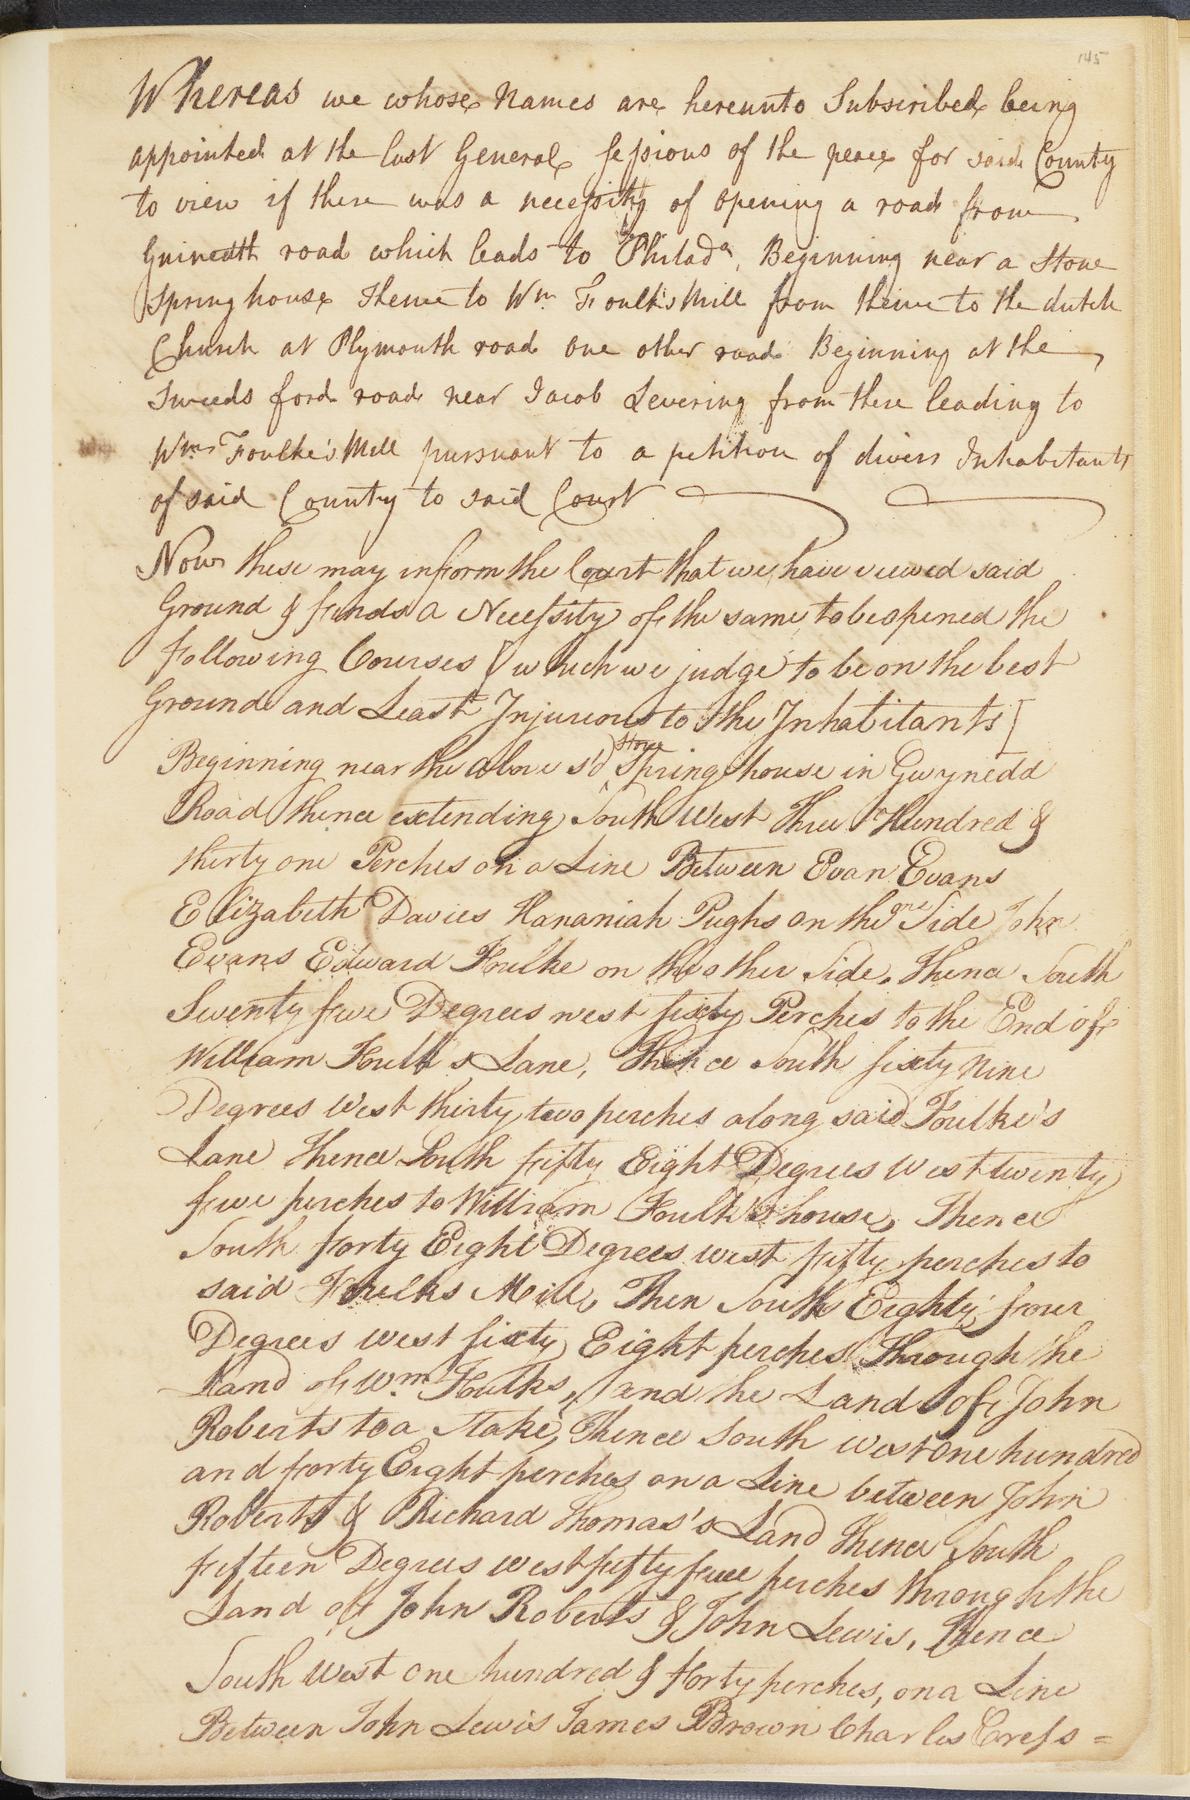 145
Whereas we whose Names are hereunto Subscribed being
appointed at the last General sessions of the peace for said County
to view if there was a necessity of opening a road from
Gwinedth road which leads to Philada. Beginning near a Stone
Spring house thence to Wm. Foulks Mill from thence to the dutch
Church at Plymouth road one other road Beginning at the
Sweeds ford road near Jacob Levering from there leading to
Wms Foulke's Mill pursuant to a petition of divers Inhabitants
of said County to said Court
Now these may inform the Court that we have viewed said
Ground & finds a Necessity of the same to be opened the
following Courses [which we judge to be on the best
Ground and Least Injureous to the Inhabitants]
Beginning near the above s'd Stone Spring house in Gwynedd
Road thence extending South West Three Hundred &
thirty one Perches on a Line Between Evan Evans
Elizabeth Davies Hananiah Pughs on the one Side John
Evans Edward Foulke on the other Side. Thence South
Twenty five Degrees west sixty Perches to the End of
William Foulk's Lane, Thence South sixty Nine
Degrees West thirty two perches along said Foulke's
Lane Thence South fifty Eight Degrees West twenty
five perches to William Foulk's house, Thence
South forty Eight Degrees west fifty perches to
said Foulks Mill, Then South Eighty four
Degrees west sixty Eight perches Through the
Land of Wm. Foulks, and the Land of John
Roberts to a Stake, Thence South west one hundred
and forty Eight perches on a Line between John
Roberts & Richard Thomas's Land Thence South
fifteen Degrees west fifty five perches through the
Land of John Roberts & John Lewis, Thence
South West one hundred & forty perches, on a Line
Between John Lewis James Brown Charles Cress=